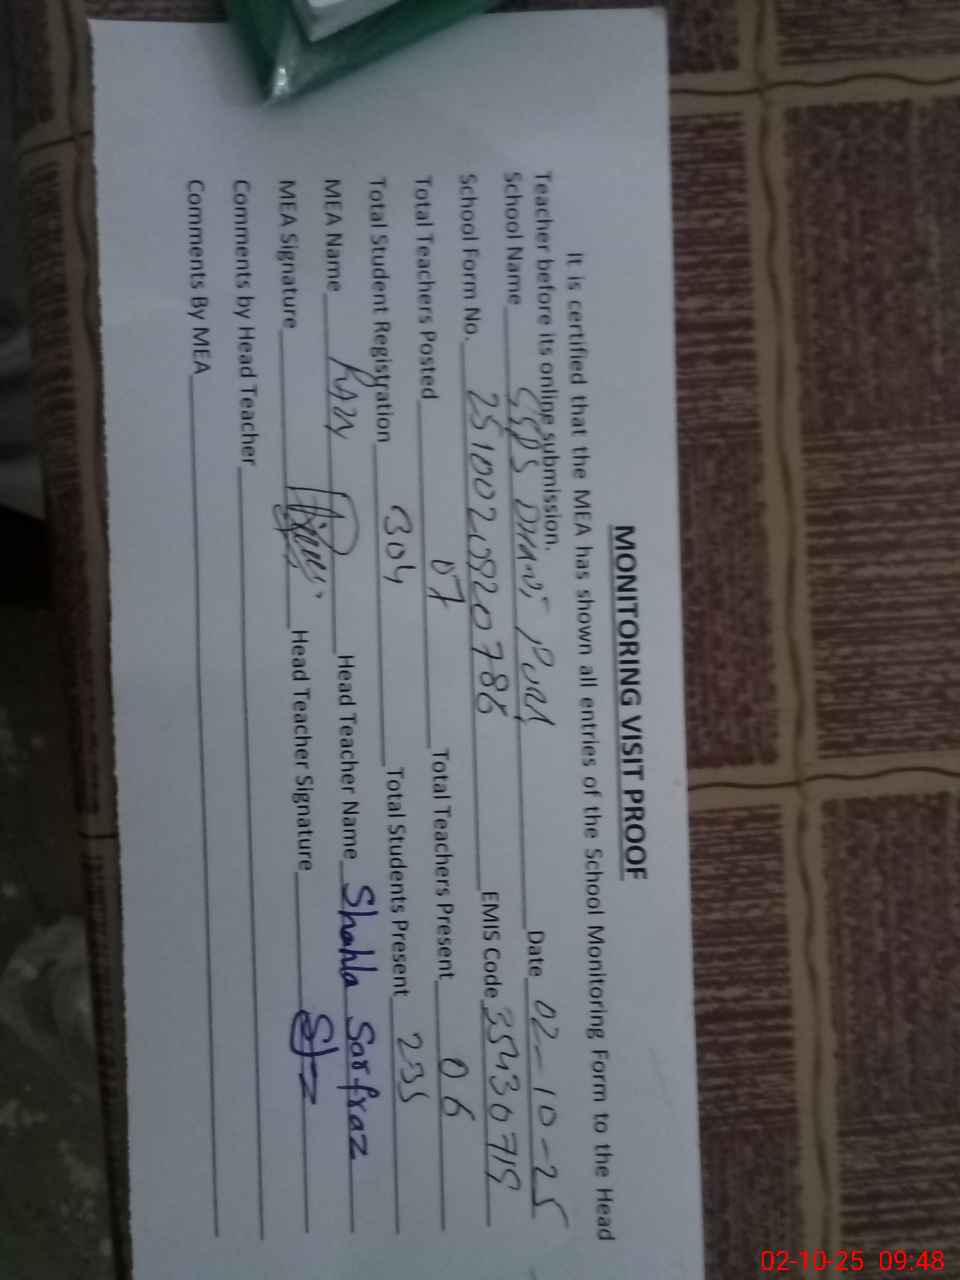 MONITORING VISIT PROOF
It is certified that the MEA has shown all entries of the School Monitoring Form to the Head
Teacher before its online submission.
School Name GGPS Date 02-10-25
School Form No. EMIS Code 35430719
Total Teachers Posted 07 Total Teachers Present 06
Total Student Registration 304 Total Students Present 235
MEA Name Head Teacher Name Shahla Sarfraz
MEA Signature Head Teacher Signature
Comments by Head Teacher
Comments By MEA
02-10-25 09:48